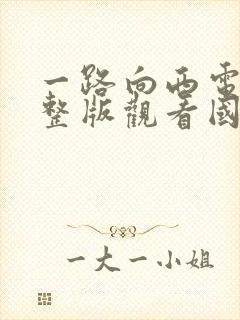 一路向西電
整版觀看國
一大一小姐